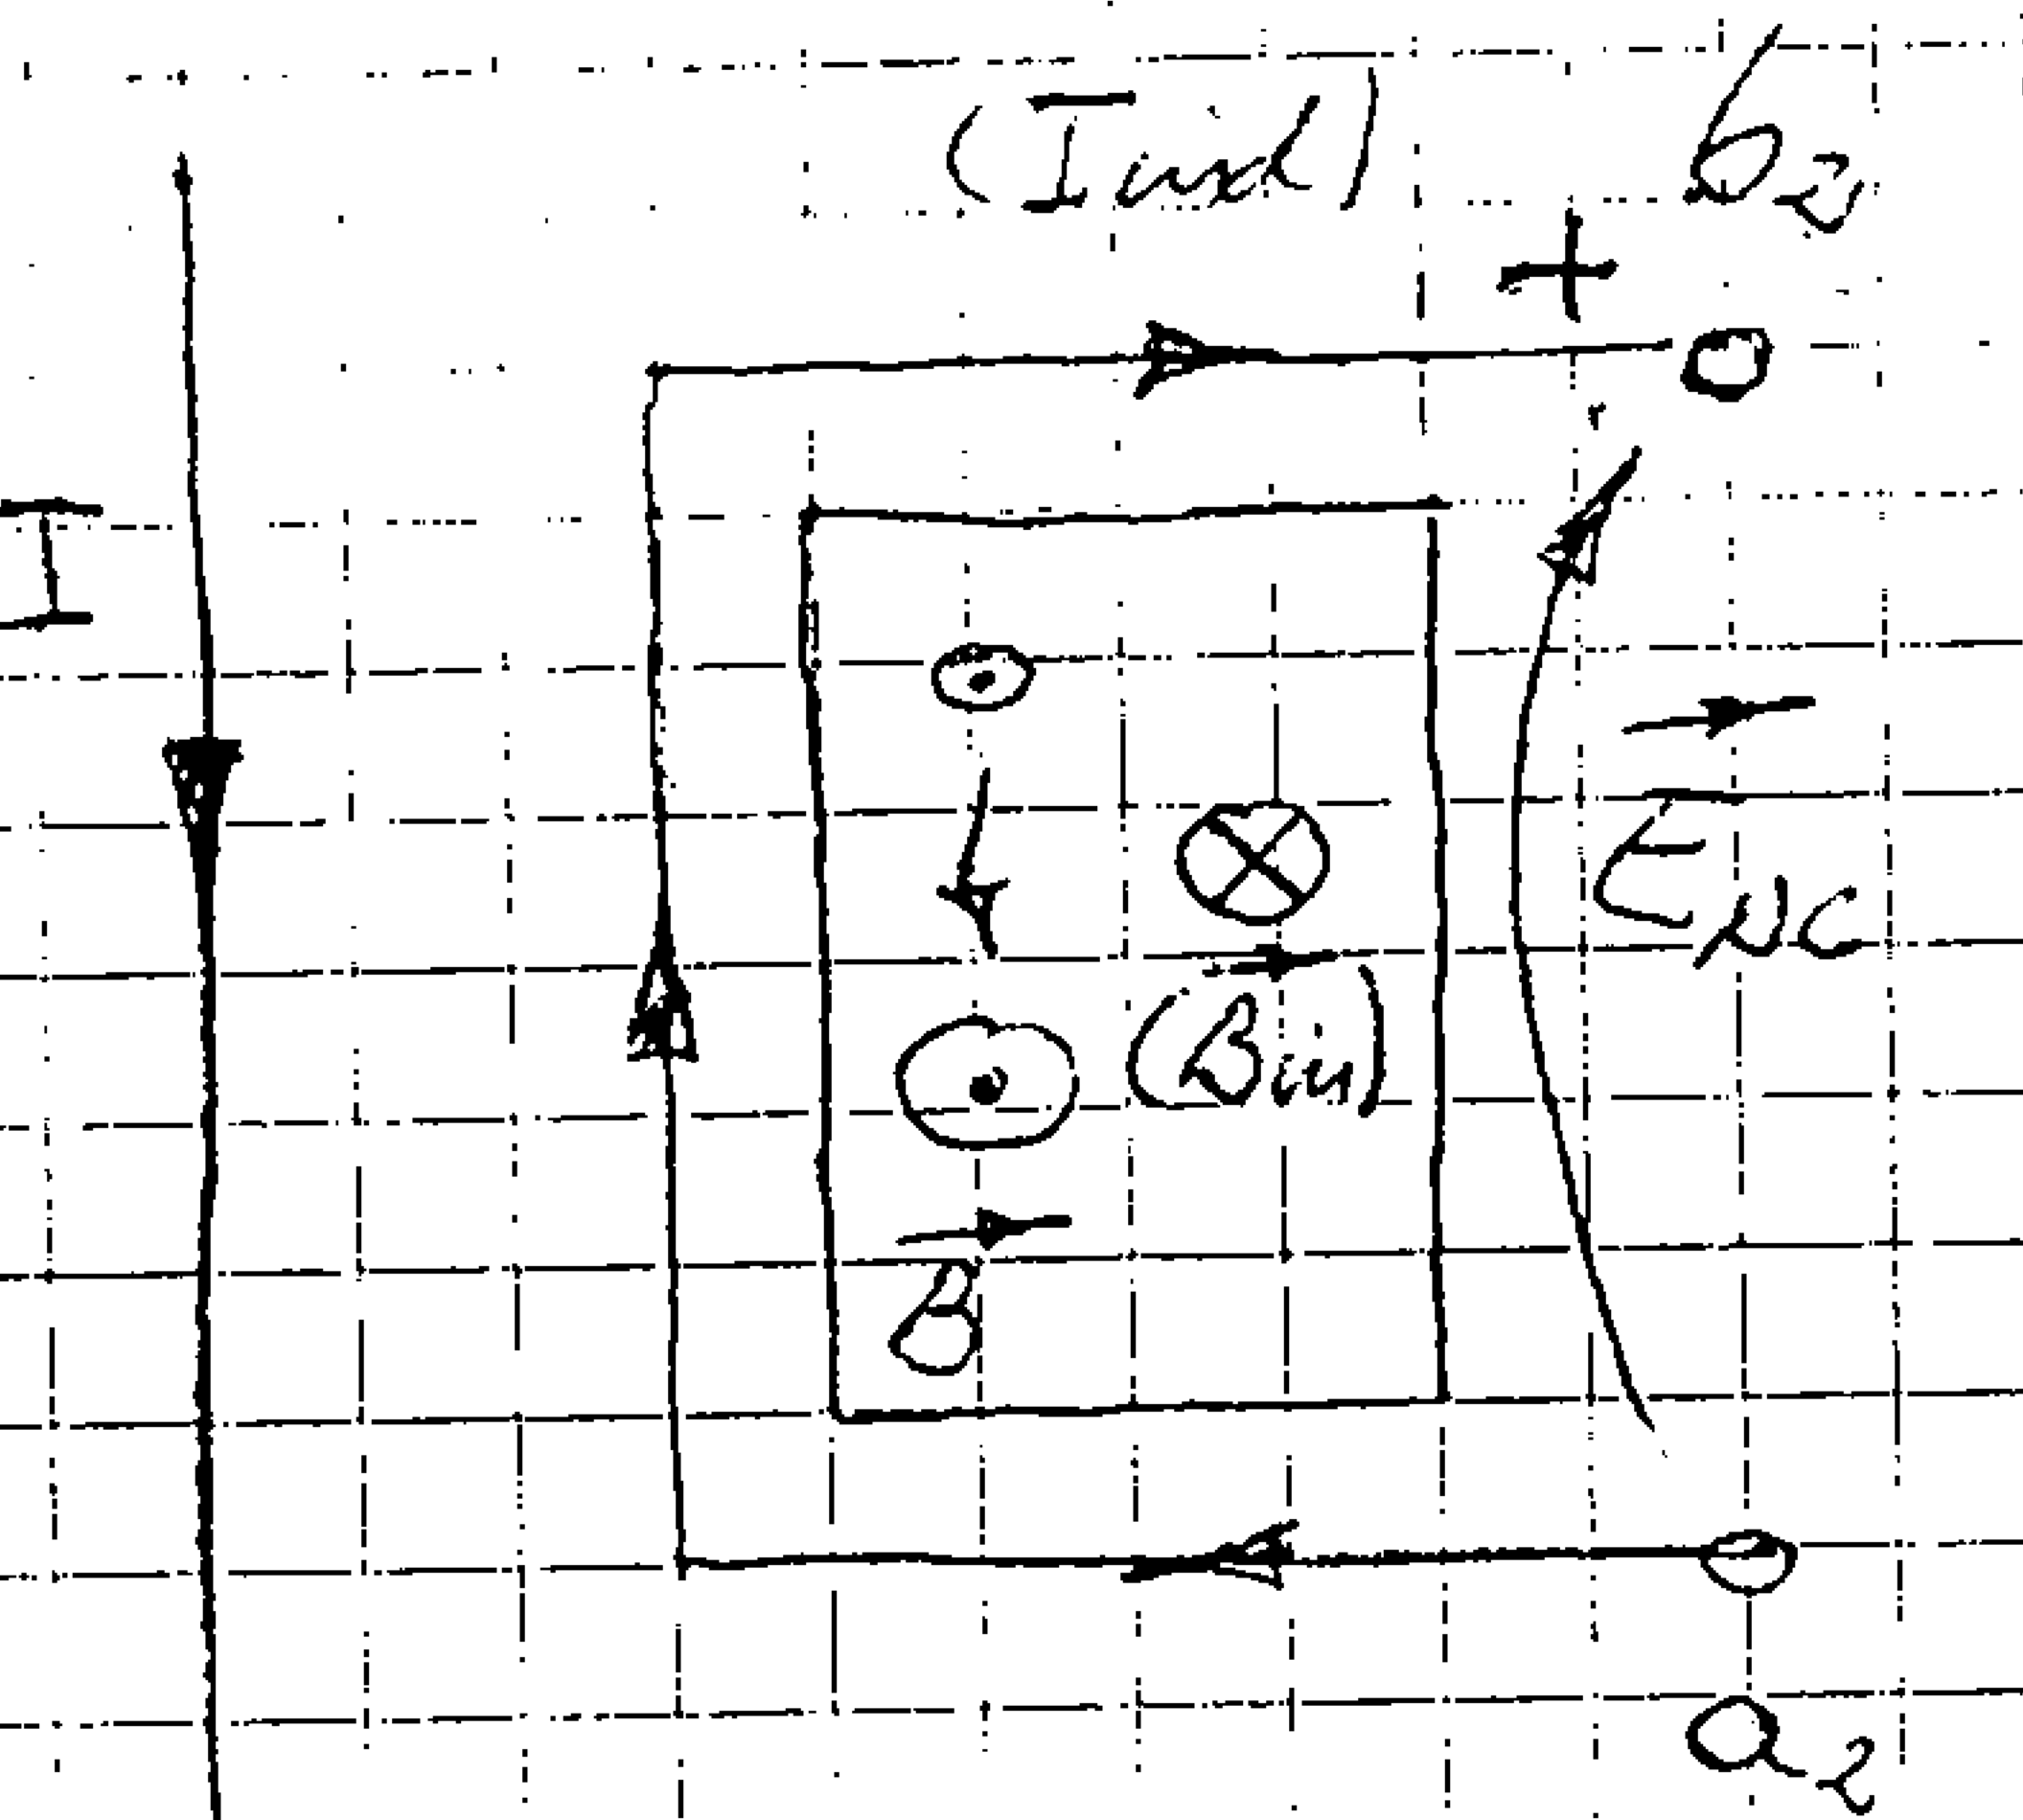 (Iind) b2
+
I
E NC
(Bin)
B
a2